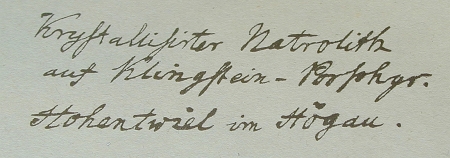 Krystallisirter Natrolith
auf Klingstein-Porphyr.
Hohentwiel im Högau.